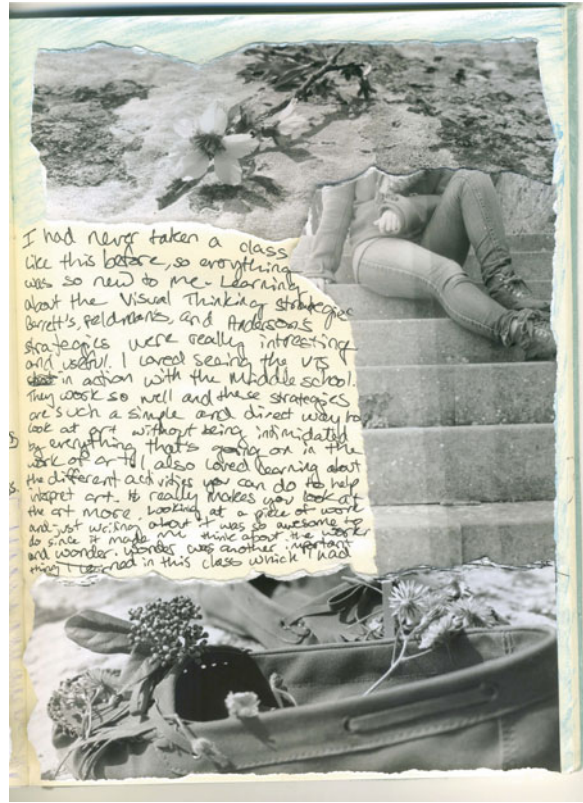 I had never taken a class
like this before, so everything
was so new to me. Learning
about the Visual Thinking strategies
Barrett's, Feldman's, and Anderson's
strategies were really interesting
and useful. I loved seeing the VTS
in action with the Middle school.
They work so well and these strategies
are such a simple and direct way to
look at art without being intimidated
by everything that's going on in the
work of art. I also loved learning about
the different activities you can do to help
intepret art. It really makes you look at
the art more. Looking at a piece of work
and just writing about it was so awesome to
do since it made me think about the work
and wonder. Wonder was another important
thing I learned in this class which I had